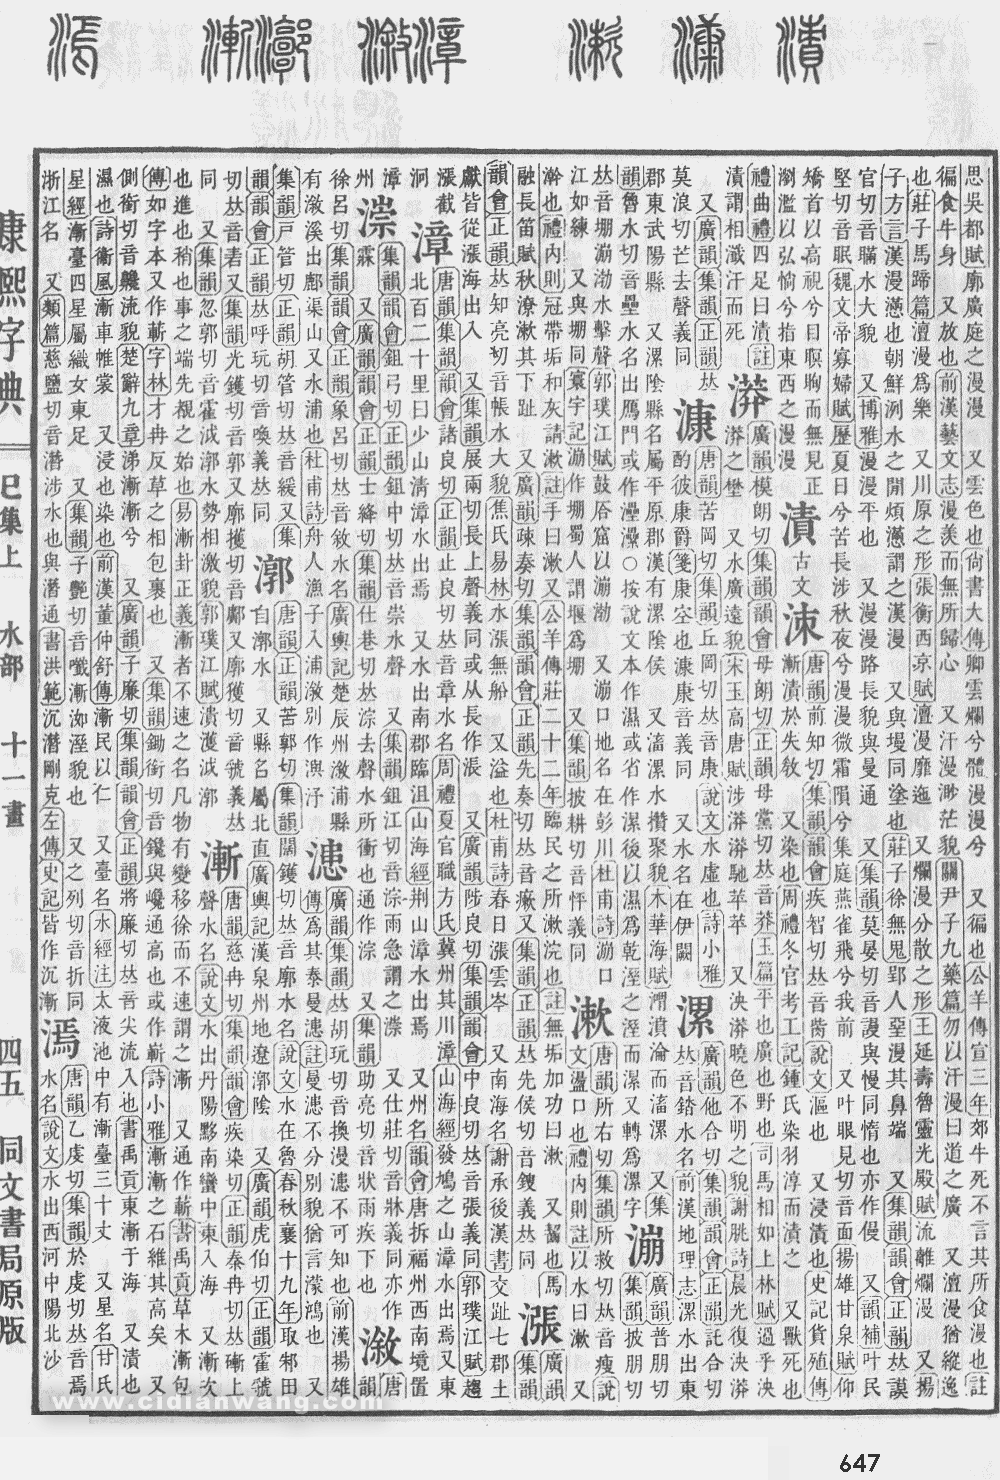 康熙字典
巳集上 水部 十一畫
四五 同文書局原版
思吳都賦廓廣庭之漫漫又雲色也尙書大傳卿雲爛兮體漫漫兮 又徧也公羊傳宣三年郊牛死不言其所食漫也註
徧食牛身 又放也前漢藝文志漫漫羨而無所歸心 又汗漫渺茫貌關尹子九藥篇勿以汗漫曰道之廣 又澶漫猶縱逸
也莊子馬蹄篇澶漫爲樂 又川原之形張衡西京賦澶漫靡迤 又爛漫分散之形王延壽魯靈光殿賦流離爛漫 又揚
子方言漢漫懣也朝鮮洌水之閒煩懣謂之漢漫 又與墁同塗也莊子徐無鬼郢人堊漫其鼻端 又集韻韻會正韻𠀤謨
官切音瞞水大貌 又博雅漫漫平也 又漫漫路長貌與曼通 又集韻莫晏切音謾與慢同惰也亦作僈 又韻補叶民
堅切音眠魏文帝寡婦賦歷夏日兮苦長涉秋夜兮漫漫微霜隕兮集庭燕雀飛兮我前 又叶眼見切音面揚雄甘泉賦仰
矯首以高視兮目瞑眴而無見正
瀏濫以弘惝兮指東西之漫漫
漬 古文
唐韻前知切集韻韻會疾智切𠀤音眥說文漚也 又浸漬也史記貨殖傳
漸漬於失敎 又染也周禮冬官考工記鍾氏染羽淳而漬之 又獸死也
禮曲禮四足曰漬註
漬謂相瀸汗而死
漭
廣韻模朗切集韻韻會母朗切正韻母黨切𠀤音莽玉篇平也廣也野也 司馬相如上林賦過乎泱
漭之壄 又水廣遠貌宋玉高唐賦涉漭漭馳苹苹 又泱漭曉色不明之貌謝朓詩晨光復泱漭
又廣韻集韻正韻𠀤
莫浪切芒去聲義同
漮
唐韻苦岡切集韻丘岡切𠀤音康說文水虛也詩小雅
酌彼康爵箋康空也漮康音義同 又水名在伊闕
漯
廣韻他合切集韻韻會正韻託合切
𠀤音錔水名前漢地理志漯水出東
郡東武陽縣 又漯陰縣名屬平原郡漢有漯陰侯 又滀漯水攢聚貌木華海賦㵒濆淪而滀漯 又集
韻魯水切音壘水名出鴈門或作灅㶟○按說文本作濕或省作漯後以濕爲乾溼之溼而漯又轉爲漯字
漰
廣韻普朋切
集韻披朋切
𠀤音堋漰渤水擊聲郭璞江賦鼓𠪨窟以漰渤 又漰口地名在彭川杜甫詩漰口
江如練 又與堋同寰宇記漰作堋蜀人謂堰爲堋 又集韻披耕切音怦義同
漱
唐韻所右切集韻所救切𠀤音瘦說
文盪口也禮內則註以水曰漱 又
澣也禮內則冠帶垢和灰請漱註手曰漱 又公羊傳莊三十一年臨民之所漱浣也註無垢加功曰漱 又齧也馬
融長笛賦秋潦漱其下趾 又廣韻疎奏切集韻韻會正韻先奏切𠀤音瘶 又集韻正韻𠀤先侯切音䏂義𠀤同
漲
廣韻集韻
韻會正韻𠀤知亮切音帳水大貌焦氏易林水漲無船 又溢也杜甫詩春日漲雲岑 又南海名謝承後漢書交趾七郡土
獻皆從漲海出入 又集韻展兩切長上聲義同或从長作涱 又廣韻陟良切集韻韻會中良切𠀤音張義同郭璞江賦躋
漲截
泂
漳
唐韻集韻韻會諸良切正韻止良切𠀤音章水名周禮夏官職方氏冀州其川漳山海經發鳩之山漳水出焉 又東
北百二十里曰少山淸漳水出焉 又水出南郡臨沮山海經荆山漳水出焉 又州名韻會唐拆福州西南境置
漳
州
漴
集韻韻會鉏弓切正韻鉏中切𠀤音崇水聲 又集韻鉏江切音淙雨急謂之漴 又仕莊切音牀義同亦作
霖 又廣韻韻會正韻士絳切集韻仕巷切𠀤淙去聲水所衝也通作淙 又集韻助亮切音狀雨疾下也
漵
唐
韻
徐呂切集韻韻會正韻象呂切𠀤音敘水名廣輿記楚辰州漵浦縣
有漵溪出鄜渠山又水浦也杜甫詩舟人漁子入浦漵別作㵰汿
漶
廣韻集韻𠀤胡玩切音換漫漶不可知也前漢揚雄
傳爲其泰曼漶註曼漶不分別貌猶言濛鴻也 又
集韻戸管切正韻胡管切𠀤音緩 又集
韻韻會正韻𠀤呼玩切音喚義𠀤同
漷
唐韻正韻苦郭切集韻闊鑊切𠀤音廓水名說文水在魯春秋襄十九年取邾田
自漷水 又縣名屬北直廣輿記漢泉州地遼漷陰 又廣韻虎伯切正韻霍號
切𠀤音㕡又集韻光鑊切音郭又廓擭切音鄺又廓獲切音𧯆義𠀤
同 又集韻忽郭切音霍㳚漷水勢相激貌郭璞江賦潰濩㳚漷
漸
唐韻慈冉切集韻韻會疾染切正韻秦冉切𠀤㔾上
聲水名說文水出丹陽黟南蠻中東入海 又漸次
也進也稍也事之端先覩之始也易漸卦正義漸者不速之名凡物有變移徐而不速謂之漸 又通作蔪書禹貢草木漸包
傳如字本又作蔪字林才冉反草之相包裹也 又集韻鋤銜切音鑱與巉通高也或作嶄詩小雅漸漸之石維其高矣 又
側銜切音纔流貌楚辭九章涕漸漸兮 又廣韻子廉切集韻韻會正韻將廉切𠀤音尖流入也書禹貢東漸于海 又漬也
濕也詩衞風漸車帷裳 又浸也染也前漢董仲舒傳漸民以仁 又臺名水經注太液池中有漸臺三十丈 又星名甘氏
星經漸臺四星屬織女東足 又集韻子豔切音㰇漸洳溼貌也 又之列切音折同
浙江名 又類篇慈鹽切音潛涉水也與潛通書洪範沉潛剛克左傳史記皆作沉漸
漹
唐韻乙虔切集韻於虔切𠀤音焉
水名說文水出西河中陽北沙
www.cidianwang.com
647